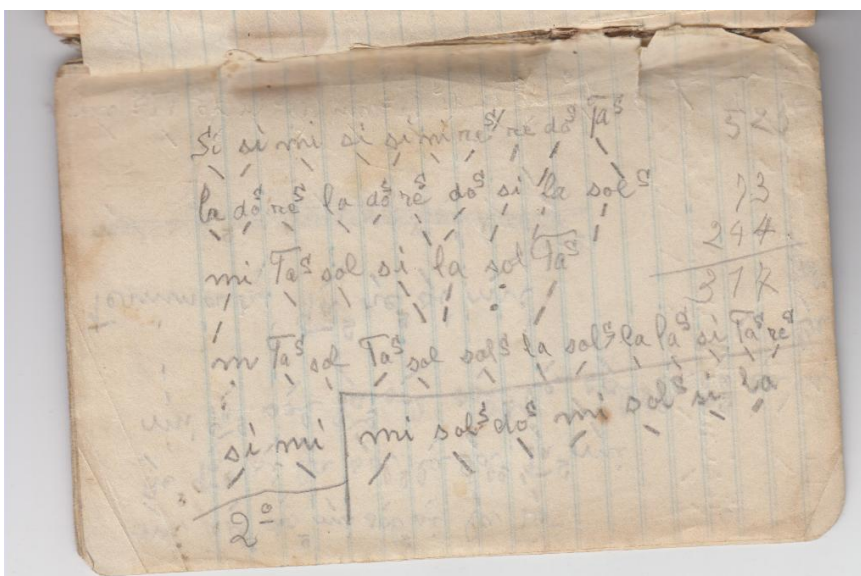 Si si mi si si mi reˢ re doˢ Faˢ 52
la doˢ reˢ la doˢ reˢ doˢ si la solˢ 73
mi Faˢ sol si la sol Faˢ 244
317
m Faˢ sol Faˢ sol solˢ la solˢ la laˢ si Faˢ reˢ
si mi mi solˢ doˢ mi solˢ si la
2º